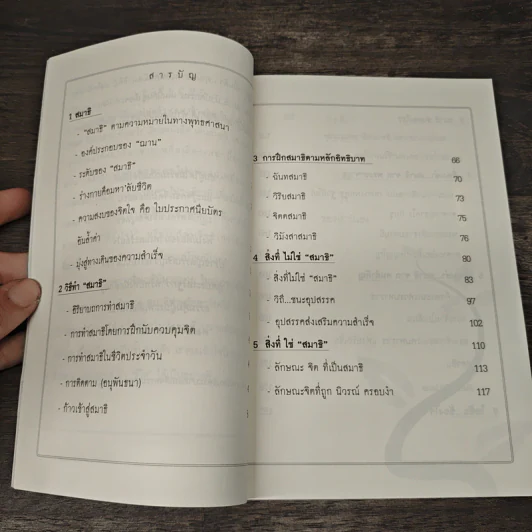 สารบัญ
1 สมาธิ
- “สมาธิ” ตามความหมายในทางพุทธศาสนา
- องค์ประกอบของ “ฌาน”
- ระดับของ “สมาธิ”
- ร่างกายคือมหาลัยชีวิต
- ความสงบของจิตใจ คือ ใบประกาศนียบัตร
อันล้ำค่า
- มุ่งสู่ทางเดินของความสำเร็จ
2 วิธีทำ “สมาธิ”
- อิริยาบถการทำสมาธิ
- การทำสมาธิโดยการฝึกนับควบคุมจิต
- การทำสมาธิในชีวิตประจำวัน
- การติดตาม (อนุพันธนา)
- ก้าวเข้าสู่สมาธิ
3 การฝึกสมาธิตามหลักอิทธิบาท 66
- ฉันทสมาธิ 70
- วิริยสมาธิ 73
- จิตตสมาธิ 75
- วิมังสาสมาธิ 76
4 สิ่งที่ ไม่ใช่ “สมาธิ” 80
- สิ่งที่ไม่ใช่ “สมาธิ” 83
- วิถี...ชนะอุปสรรค 97
- อุปสรรคส่งเสริมความสำเร็จ 102
5 สิ่งที่ ใช่ “สมาธิ” 110
- ลักษณะ จิต ที่เป็นสมาธิ 113
- ลักษณะจิตที่ถูก นิวรณ์ ครอบงำ 117